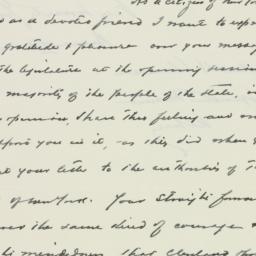 As a citizen of New York
as a devoted friend I want to express
gratitude & pleasure over your message
the legislature at the opening session
majority of the people of the state, i
opinion, share this feeling and
support you in it, as they did when
your letter to the authorities of
of New York. Your straight forward
the same kind of courage
that Cleveland